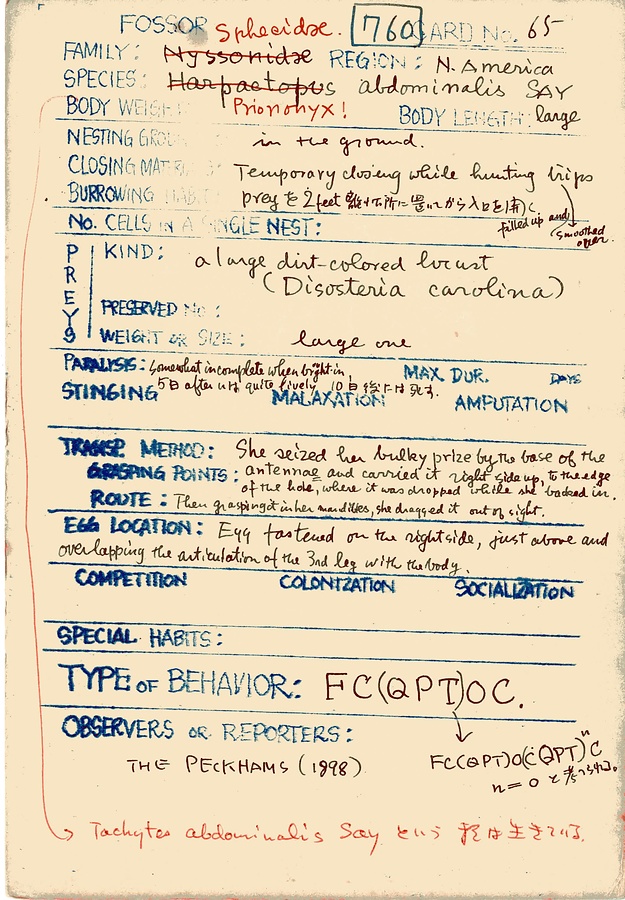 FOSSOR Sphecidae. 760 CARD No. 65
FAMILY: Nyssonidae REGION: N. America
SPECIES: Harpactopus abdominalis SAY
BODY WEIGH Prionyx! BODY LENGTH: large
NESTING GROU in the ground.
CLOSING MATERI Temporary closing while hunting trips
BURROWING HABIT prey を 2 feet
filled up and smoothed over.
No. CELLS IN A SINGLE NEST:
PREYS
KIND: a large dirt-colored locust
(Disosteria carolina)
PRESERVED No:
WEIGHT OR SIZE: large one
PARALYSIS: somewhat incomplete when bright in, MAX. DUR. DAYS
5日 after いは quite lively 10日後には死す.
STINGING MALAXATION AMPUTATION
TRANSP. METHOD: She seized her bulky prize by the base of the
GRASPING POINTS: antennae and carried it right side up, to the edge
of the hole, where it was dropped while she backed in.
ROUTE: Then grasping it in her mandibles, she dragged it out of sight.
EGG LOCATION: Egg fastened on the right side, just above and
overlapping the articulation of the 3rd leg with the body.
COMPETITION COLONIZATION SOCIALIZATION
SPECIAL HABITS:
TYPE OF BEHAVIOR: FC(QPT)OC.
OBSERVERS OR REPORTERS:
FC(QPT)O(CQPT)ⁿC
n = 0 と
THE PECKHAMS (1898)
Tachytes abdominalis Say という 種は生きている.